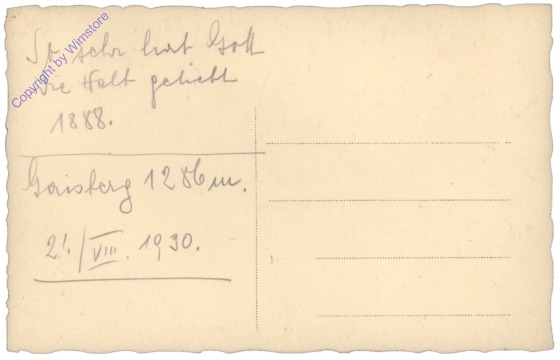 So sehr hat Gott
die Welt geliebt
1888.
Gaisberg 1286m.
2./VIII. 1930.
Copyright by Wimstore